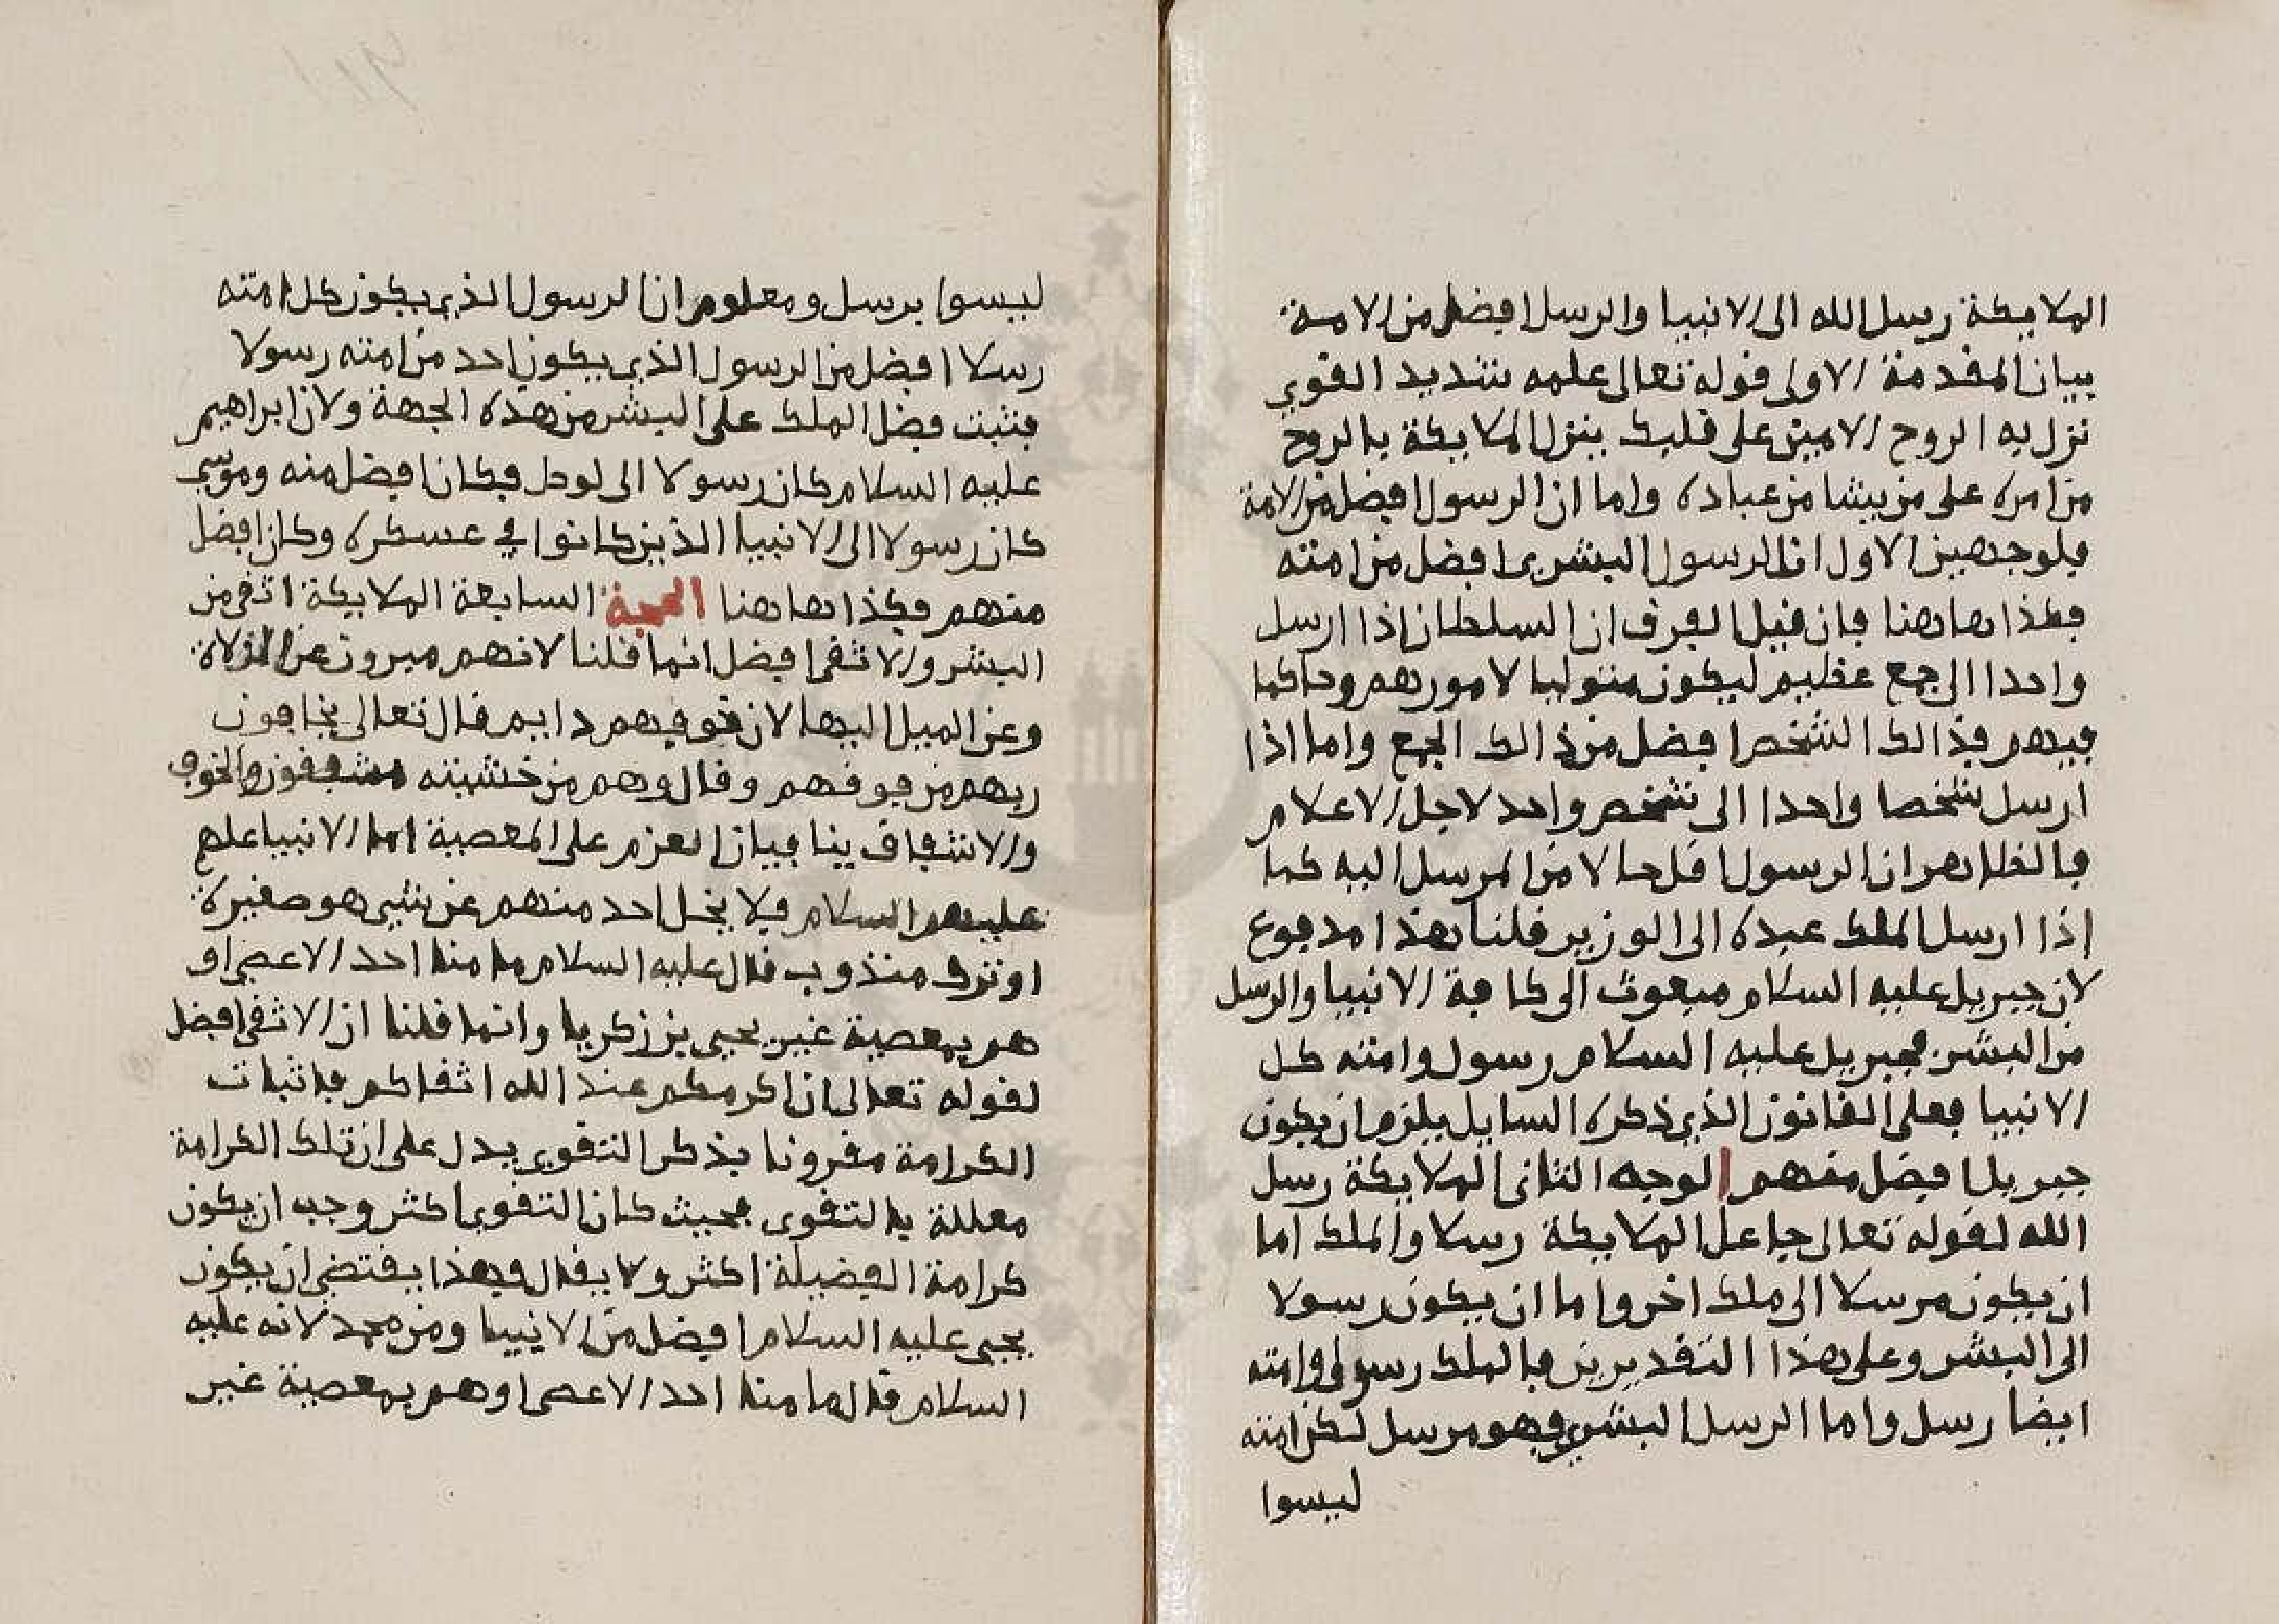 الملايكة رسل الله الى الانبيا والرسل افضل من الامة
بيان المقدمة الاولى قوله تعالى علمه شديد القوى
نزل به الروح الامين على قلبك ينزل الملايكة بالروح
من امره على من يشا من عباده واما ان الرسول افضل من الامة
فلوجهين الاول ان الرسول البشرى افضل من امته
فكذا هاهنا فان قيل الفرق ان السلطان اذا ارسل
واحدا الى جمع عظيم ليكون متوليا لامورهم وحاكما
فيهم فذالك الشخص افضل من ذالك الجمع واما اذا
ارسل شخصا واحدا الى شخص واحد لاجل الاعلام
فالظاهر ان الرسول اقل حالا من المرسل اليه كما
إذا ارسل الملك عبده الى الوزير قلنا هذا مدفوع
لان جبريل عليه السلام مبعوث الى كافة الانبيا والرسل
من البشر فجبريل عليه السلام رسول وامته كل
الانبيا فعلى القانون الذي ذكره السايل يلزم ان يكون
جبريل افضل منهم الوجه الثانى الملايكة رسل
الله لقوله تعالى جاعل الملايكة رسلا والملك اما
ان يكون مرسلا الى ملك اخر واما ان يكون رسولا
الى البشر وعلى هذا التقديرين فالملك رسول وامته
ايضا رسل واما الرسل البشرى فهو مرسل لكن امته
ليسوا
ليسوا برسل ومعلوم ان الرسول الذي يكون كل امته
رسلا افضل من الرسول الذي يكون احد من امته رسولا
فثبت فضل الملك على البشر من هذه الجهة ولان ابراهيم
عليه السلام كان رسولا الى لوط فكان افضل منه وموسى
كان رسولا الى الانبيا الذين كانوا في عسكره وكان افضل
منهم فكذا هاهنا الحجة السابعة الملايكة اتقى من
البشر والاتقى افضل انما قلنا لانهم مبرون عن الزلاة
وعن الميل اليها لان خوفهم دايم قال تعالى يخافون
ربهم من فوقهم وقال وهم من خشيته مشفقون والخوف
والاشفاق ينافيان العزم على المعصية اما الانبيا علهم
عليهم السلام فلا يخل احد منهم عن شي هو صغيرة
او ترك منذوب قال عليه السلام ما منا احد الا عصى او
هم بمعصية غير يحيى بن زكريا وانما قلنا ان الاتقى افضل
لقوله تعالى ان اكرمكم عند الله اتقاكم فاثبات
الكرامة مقرونا بذكر التقوى يدل على ان تلك الكرامة
معللة بالتقوى فحيث كان التقوى اكثر وجب ان يكون
كرامة الفضيلة اكثر ولا يقال فهذا يقتضى ان يكون
يحيى عليه السلام افضل من الانبيا ومن محمد لانه عليه
السلام قال ما منا احد الا عصى او هم بمعصية غير